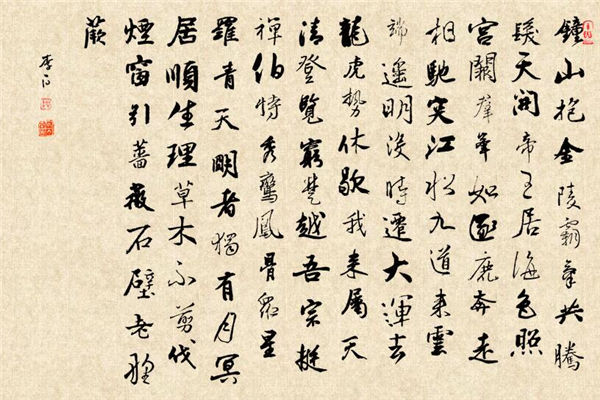 鐘山抱金陵霸氣昔騰
發天開帝王居海色照
宮闕群峯如逐鹿奔走
相馳突江水九道来雲
端遥明沒時遷大運去
龍虎勢休歇我来屬天
清登覽窮楚越吾宗挺
禪伯特秀鸞鳳骨眾星
羅青天明者獨有月冥
居順生理草木不剪伐
煙窗引薔薇石壁老野
蕨